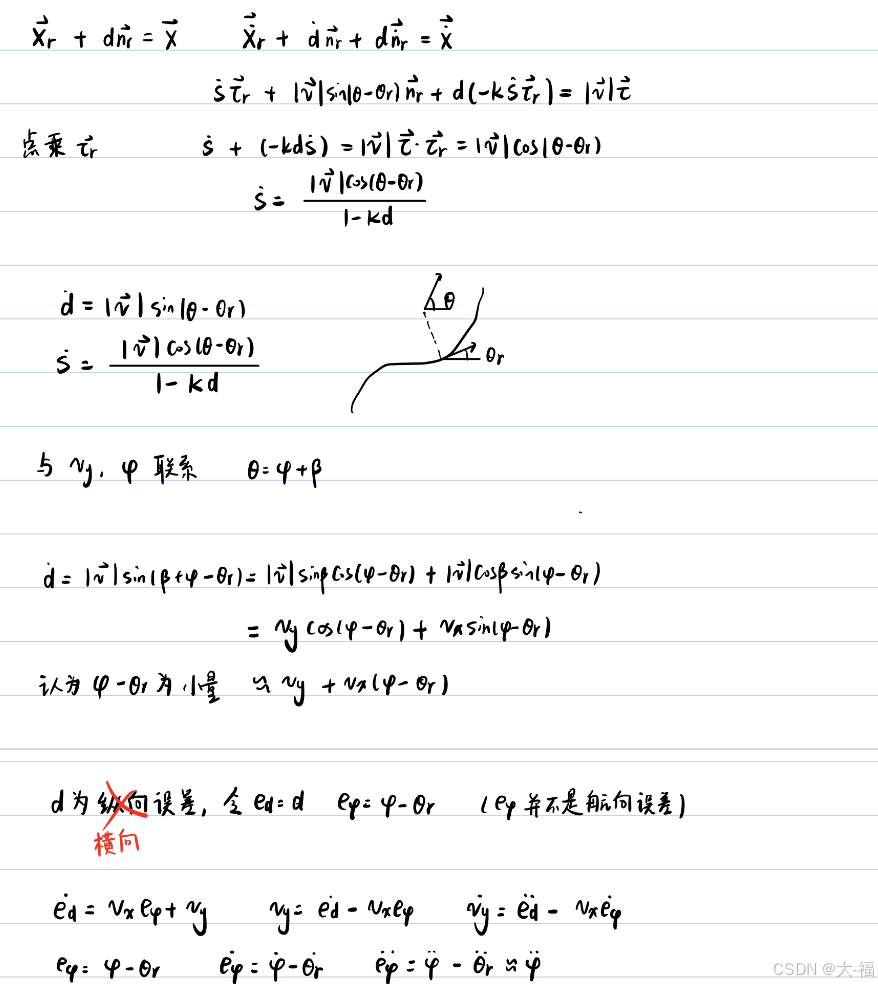 $\vec{x}_r + d\vec{n}_r = \vec{x}$  $\dot{\vec{x}}_r + \dot{d}\vec{n}_r + d\dot{\vec{n}}_r = \dot{\vec{x}}$
$\dot{s}\vec{\tau}_r + |\vec{v}|\sin(\theta-\theta_r)\vec{n}_r + d(-k\dot{s}\vec{\tau}_r) = |\vec{v}|\vec{\tau}$
点乘 $\vec{\tau}_r$  $\dot{s} + (-kd\dot{s}) = |\vec{v}|\vec{\tau}\cdot\vec{\tau}_r = |\vec{v}|\cos(\theta-\theta_r)$
$\dot{s} = \frac{|\vec{v}|\cos(\theta-\theta_r)}{1-kd}$
$\dot{d} = |\vec{v}|\sin(\theta-\theta_r)$
$\dot{s} = \frac{|\vec{v}|\cos(\theta-\theta_r)}{1-kd}$
θ
θr
与 $v_y$, φ 联系  θ=φ+β
$\dot{d} = |\vec{v}|\sin(\beta+\varphi-\theta_r) = |\vec{v}|\sin\beta\cos(\varphi-\theta_r) + |\vec{v}|\cos\beta\sin(\varphi-\theta_r)$
$= v_y\cos(\varphi-\theta_r) + v_x\sin(\varphi-\theta_r)$
认为 φ-θr 为小量 $\approx v_y + v_x(\varphi-\theta_r)$
d为纵向误差, 令 $e_d = d$  $e_\varphi = \varphi-\theta_r$  ($e_\varphi$ 并不是航向误差)
横向
$\dot{e_d} = v_x e_\varphi + v_y$  $v_y = \dot{e_d} - v_x e_\varphi$  $\dot{v_y} = \ddot{e_d} - v_x\dot{e_\varphi}$
$e_\varphi = \varphi-\theta_r$  $\dot{e_\varphi} = \dot{\varphi}-\dot{\theta_r}$  $\ddot{e_\varphi} = \ddot{\varphi} - \ddot{\theta_r} \approx \ddot{\varphi}$
CSDN @大-福